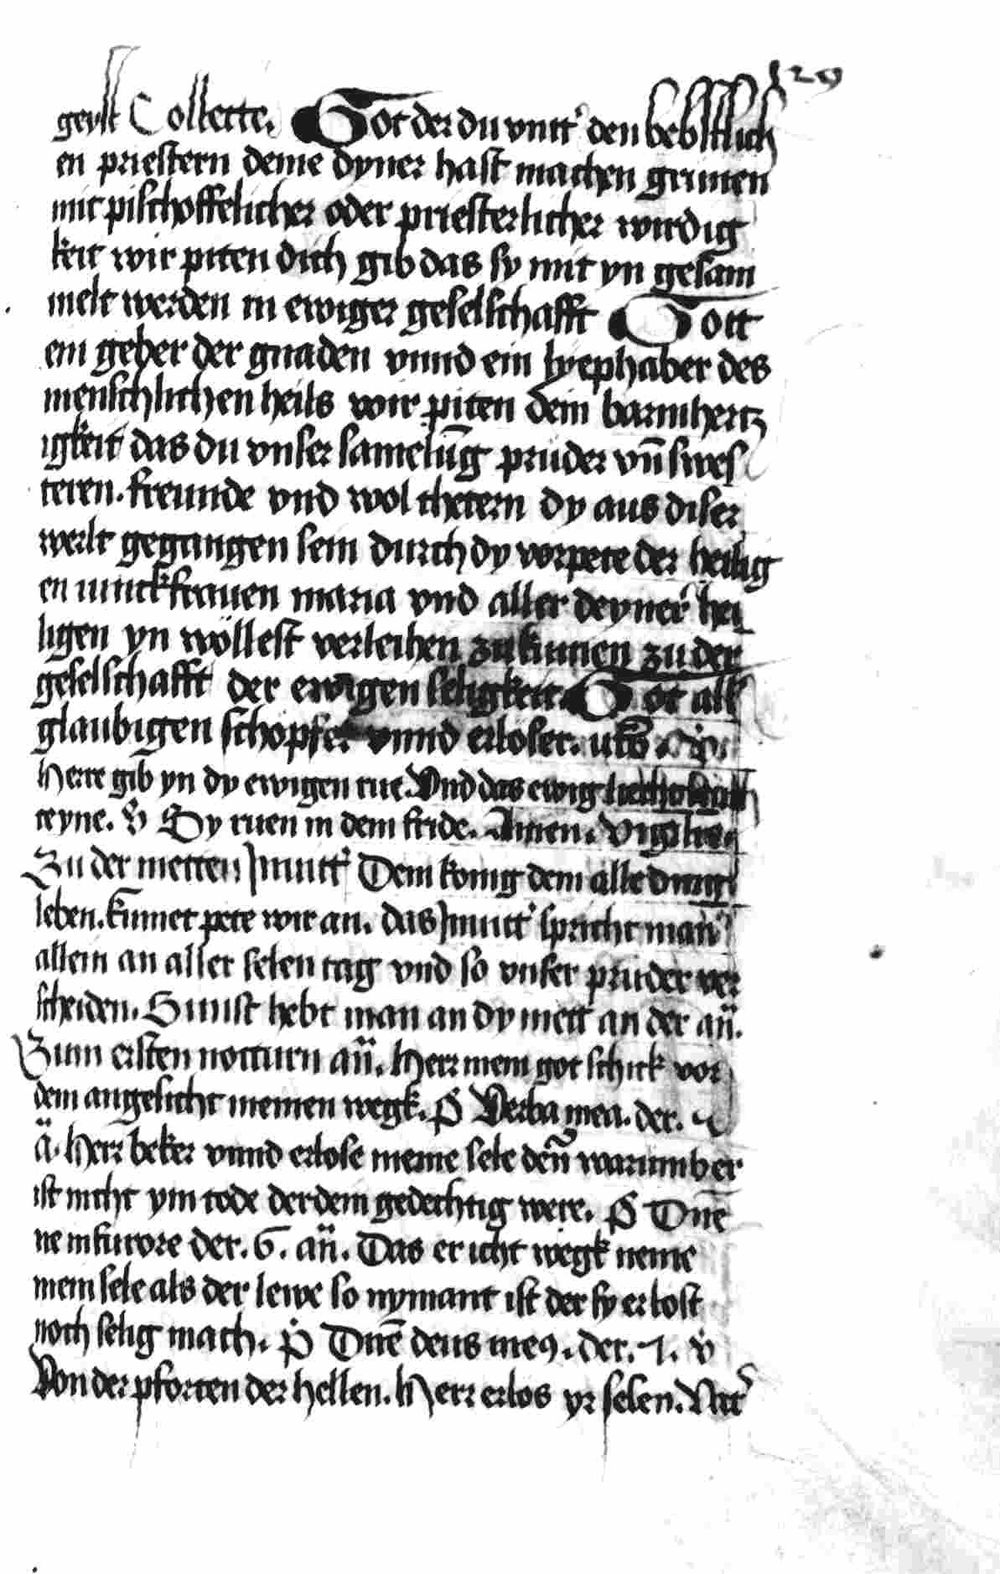 129
geyst Collette. Got der du vntt' den bebstlich
en priestern deine dyner hast machen grunen
mit pischoffelicher oder priesterlicher wirdig
keit wir piten dich gib das sy mit yn gesam
melt werden in ewiger geselschafft Gott
ein geber der gnaden vnnd ein lyephaber des
menschlichen heils wir piten dein barmhertz
igkeit das du vnser samelūg pruder vn̄ swes
teren. freunde vnd wol thetern dy aus diser
werlt gegangen sein durch dy vorpete der heilig
en iunckfrauen maria vnd aller deyner hei
ligen yn wöllest verleihen zu kumen zu der
geselschafft der ewigen seligkeit. Got all
glaubigen schopfer vnnd erloser. vt sͣ. V̇
Herre gib yn dy ewigen rue. Vnd das ewig licht
teyne. V̇ Sy ruen in dem fride. Amen. Vigilie.
Zu der metten Jnuitt' Dem konig dem alle ding
leben. kumet pete wir an. das Jnuitt' spricht man
allein an aller selen tag vnd so vnser pruder ver
scheiden. Sunst hebt man an dy mett an der an̄.
Zum ersten notturn an̄. Herr mein got schick vor
dem angesicht meinen wegk. P̄s Verba mea. der.
ā. Herr beker vnnd erlose meine sele den̄ warumb er
ist nicht ym tode der dein gedechtig were. P̄s Dn̄e
ne in furore der. 6. an̄. Das er icht wegk neme
mein sele als der lewe so nymant ist der sy erlost
noch selig mach. P̄s Dn̄e deus meꝯ. der. 7. v̇
Von der pforten der hellen. Herr erlos yr selen.